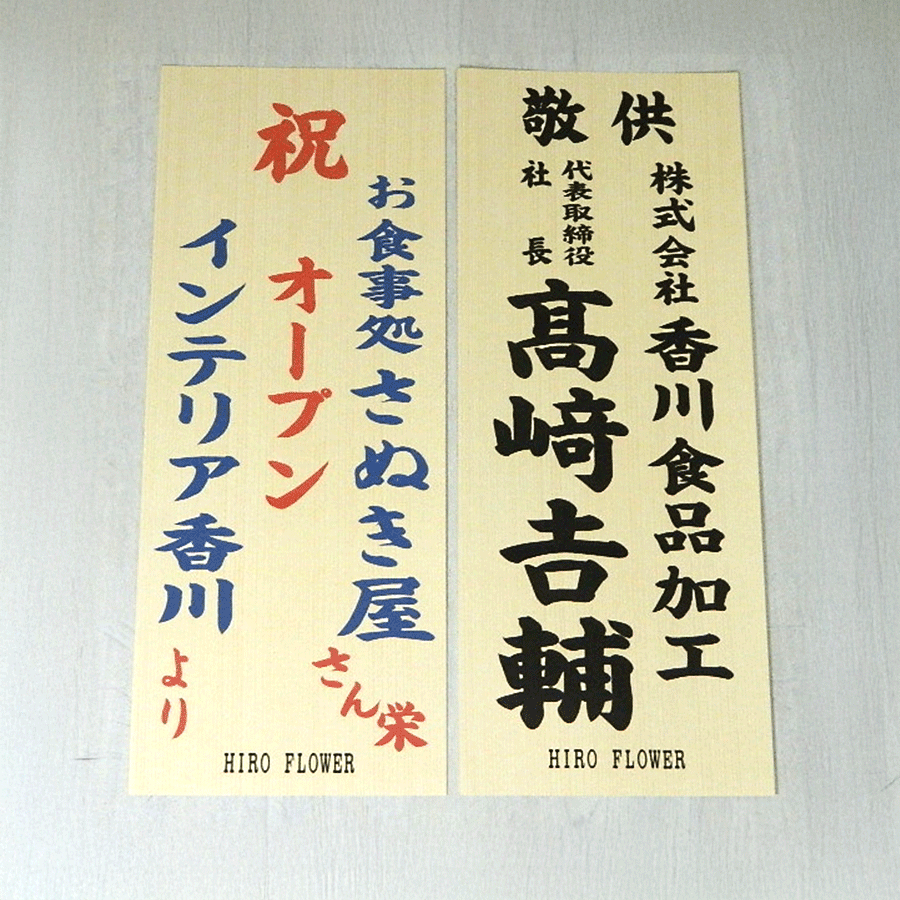 祝
お食事処さぬき屋
さん栄
オープン
インテリア香川
より
HIRO FLOWER
敬供
株式会社香川食品加工
代表取締役
社長
髙﨑𠮷輔
HIRO FLOWER